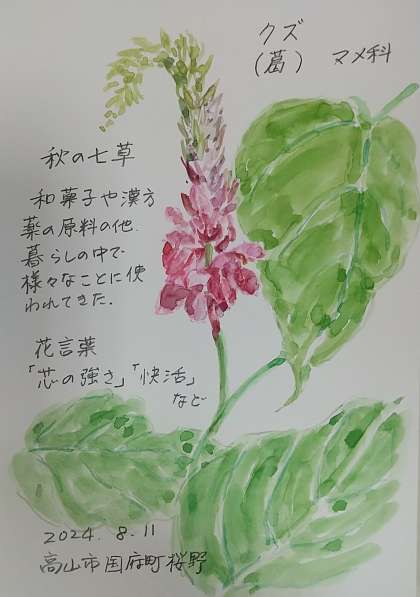 クズ
(葛) マメ科
秋の七草
和菓子や漢方
薬の原料の他
暮らしの中で
様々なことに使
われてきた.
花言葉
「芯の強さ」「快活」
など
2024. 8. 11
高山市国府町桜野